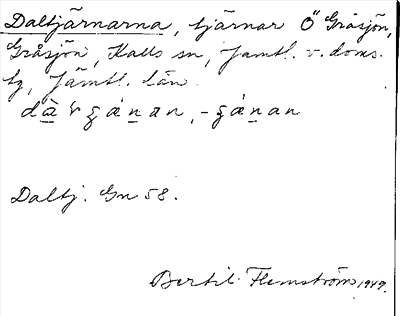 Daltjärnarna, tjärnar Ö Gråsjön,
Gråsjön, Kalls sn, Jämtl. v. doms.
tg, Jämtl. län.
Daltj. Gn 58.
Bertil Flemström 1949.